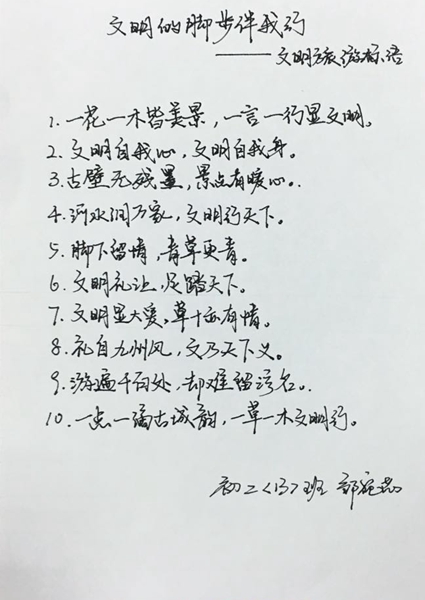 文明的脚步伴我行
——文明旅游标语
1. 一花一木皆美景，一言一行显文明。
2. 文明自我心，文明自我身。
3. 古壁无残墨，景点有暖心。
4. 河水润万家，文明行天下。
5. 脚下留情，青草更青。
6. 文明礼让，足踏天下。
7. 文明显大爱，草木亦有情。
8. 礼自九州风，文乃天下义。
9. 游遍千百处，却难留污名。
10. 一点一滴古城韵，一草一木文明行。
初二<13>班 郭宛